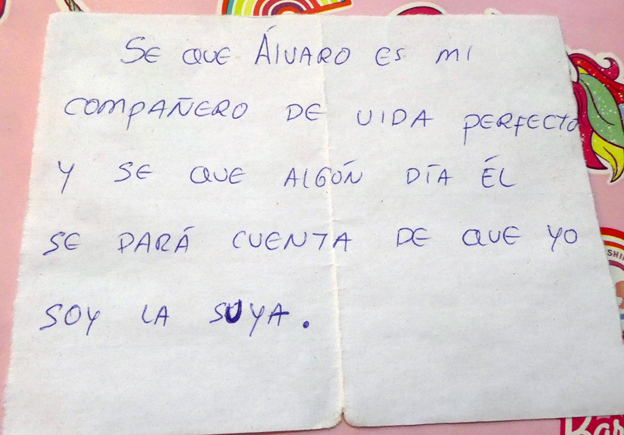 SE QUE ÁLVARO ES MI
COMPAÑERO DE VIDA PERFECTO
Y SE QUE ALGÚN DÍA ÉL
SE DARÁ CUENTA DE QUE YO
SOY LA SUYA.